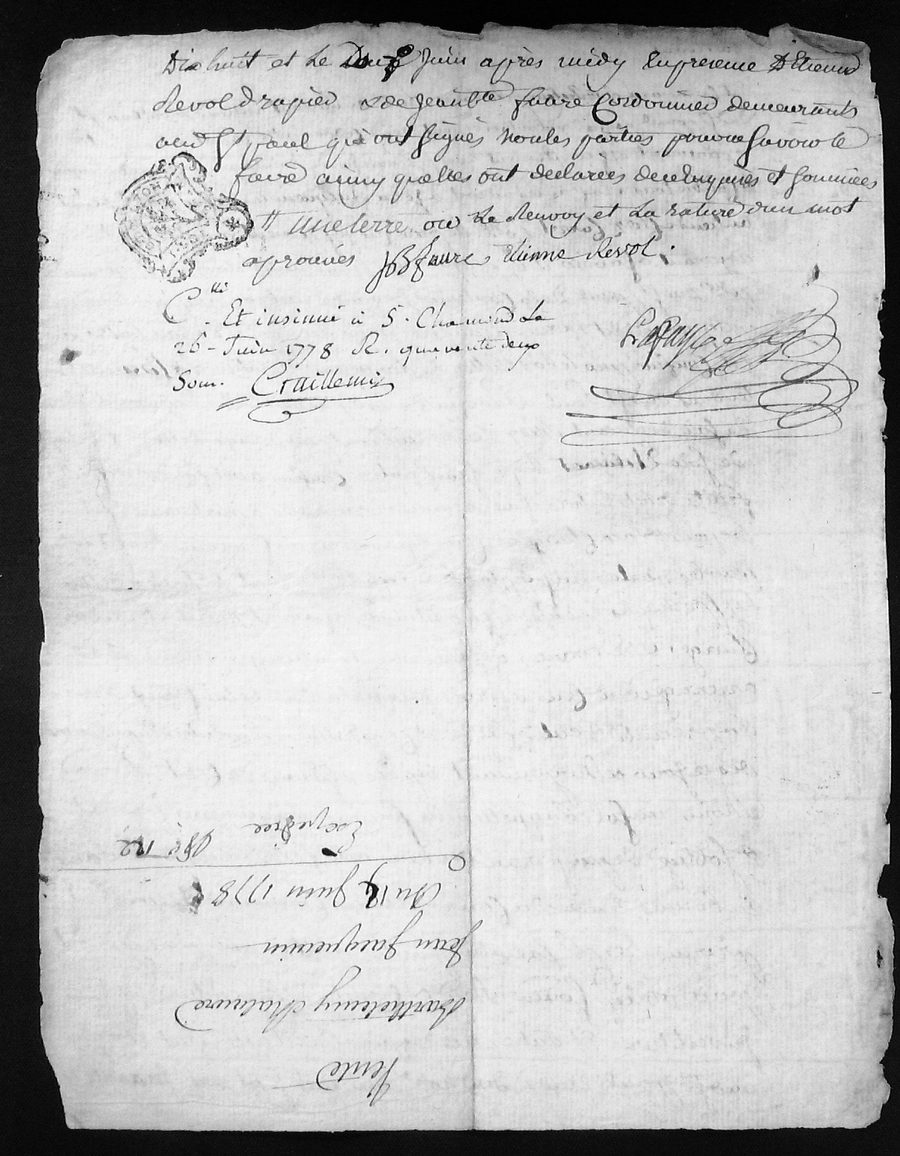 Dix huit et Le Douze Juin après midy En presence D'Etienne
Revol drapier & de Jean Bte faure Cordonnier demeurants
aud St paul qui ont signés non les parties pour ne savoir le
faire ainsy qu'elles ont declarées de ce Enquises et sommées
# une terre ou Le Renvoy et La rature d'un mot
aprouvés JB faure etienne Revol.
C lle Et insinué à St Chamond Le
26 Juin 1778 R. quarente deux
Sou.
Vente
Barthelemy
Jean Jacquemin
Du Juin 1778
Expediée